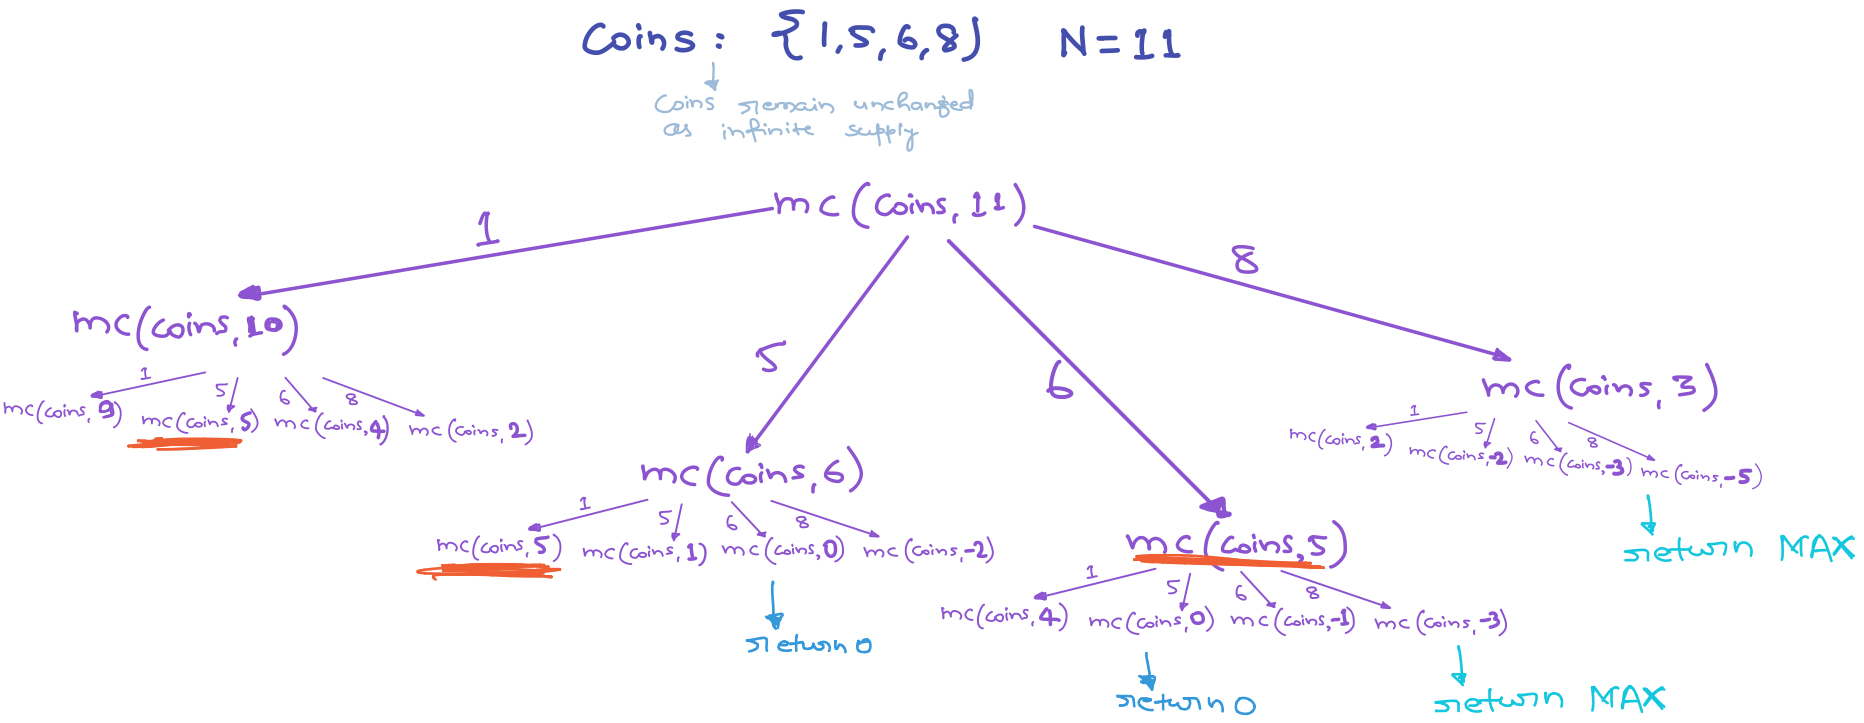 Coins : {1,5,6,8} N=11
Coins remain unchanged
as infinite supply
mc(coins,11)
1
5
6
8
mc(coins,10)
1
5
6
8
mc(coins,9)
mc(coins,5)
mc(coins,4)
mc(coins,2)
mc(coins,6)
1
5
6
8
mc(coins,5)
mc(coins,1)
mc(coins,0)
mc(coins,-2)
return 0
mc(coins,5)
1
5
6
8
mc(coins,4)
mc(coins,0)
mc(coins,-1)
mc(coins,-3)
return 0
return MAX
mc(coins,3)
1
5
6
8
mc(coins,2)
mc(coins,-2)
mc(coins,-3)
mc(coins,-5)
return MAX